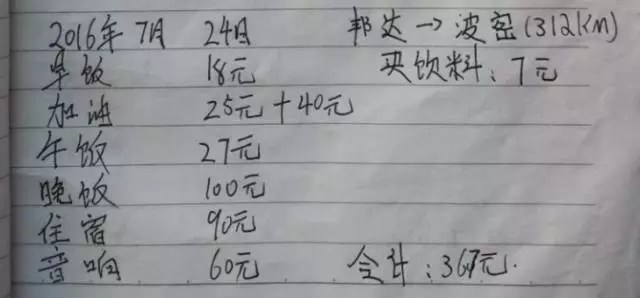 2016年7月 24日 邦达→波密(312KM)
早饭 18元 买饮料：7元
加油 25元+40元
午饭 27元
晚饭 100元
住宿 90元
音响 60元 合计：367元.